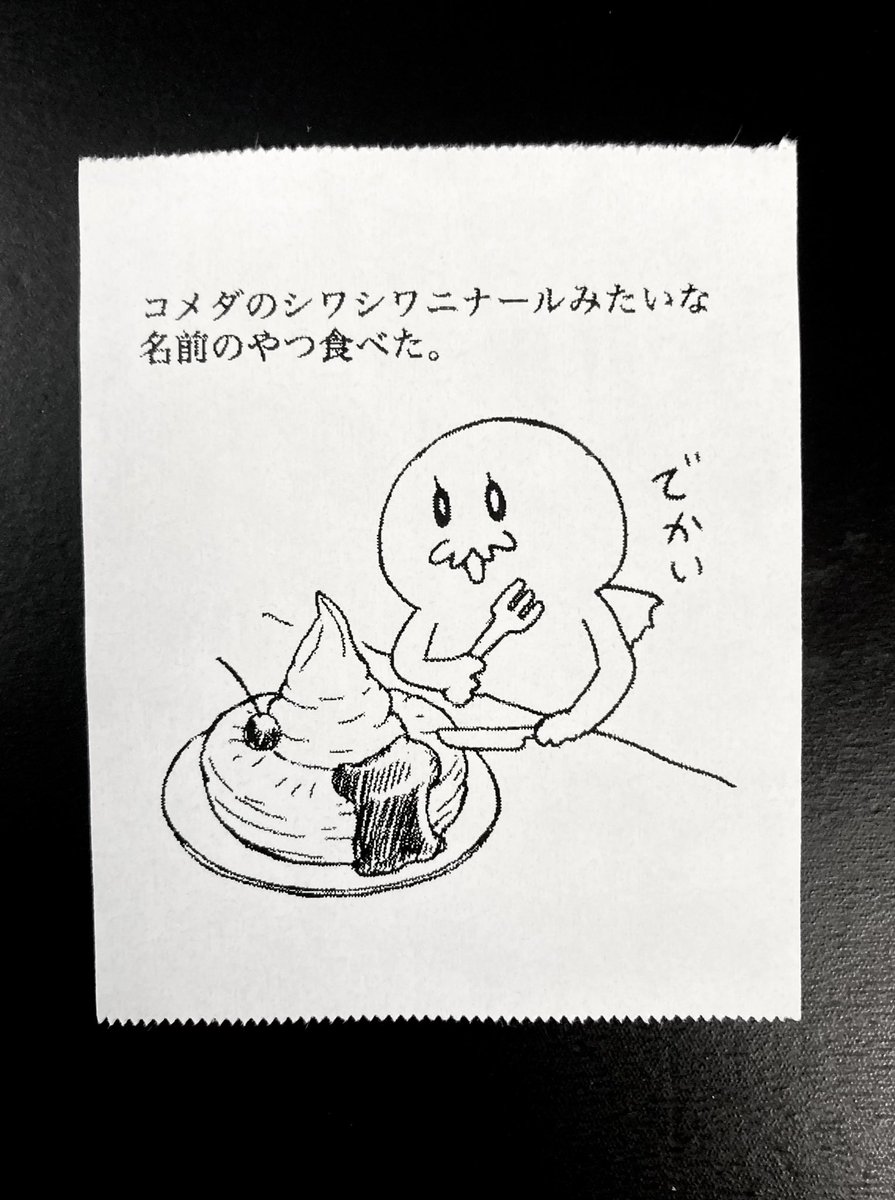 コメダのシワシワニナールみたいな
名前のやつ食べた。
でかい